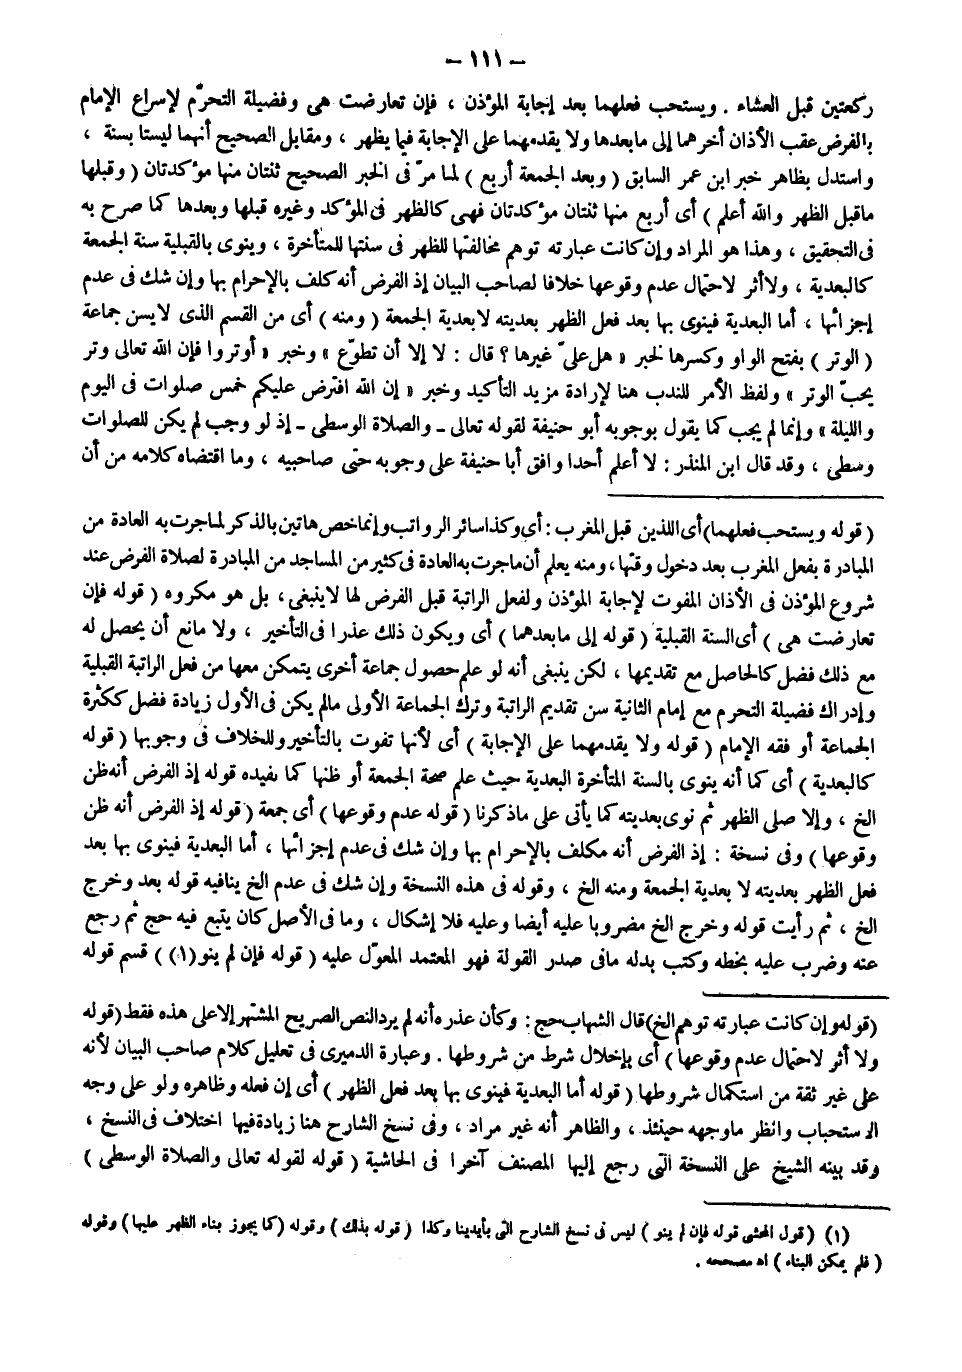 - ١١١ -
ركعتين قبل العشاء . ويستحب فعلهما بعد إجابة المؤذن ، فإن تعارضت هى وفضيلة التحرّم لإسراع الإمام
بالفرض عقب الأذان أخرهما إلى مابعدها ولا يقدمهما على الإجابة فيما يظهر ، ومقابل الصحيح أنهما ليستا بسنة ،
واستدل بظاهر خبر ابن عمر السابق ( وبعد الجمعة أربع ) لما مرّ فى الخبر الصحيح ثنتان منها مؤكدتان ( وقبلها
ماقبل الظهر والله أعلم ) أى أربع منها ثنتان مؤكدتان فهى كالظهر فى المؤكد وغيره قبلها وبعدها كما صرح به
فى التحقيق ، وهذا هو المراد وإن كانت عبارته توهم مخالفتها للظهر فى سنتها للمتأخرة ، وينوى بالقبلية سنة الجمعة
كالبعدية ، ولا أثر لاحتمال عدم وقوعها خلافا لصاحب البيان إذ الفرض أنه كلف بالإحرام بها وإن شك فى عدم
إجزائها ، أما البعدية فينوى بها بعد فعل الظهر بعديته لابعدية الجمعة ( ومنه ) أى من القسم الذى لايسن جماعة
( الوتر ) بفتح الواو وكسرها لخبر « هل علىّ غيرها ؟ قال : لا إلا أن تطوّع » وخبر « أوتروا فإن الله تعالى وتر
يحبّ الوتر » ولفظ الأمر للندب هنا لإرادة مزيد التأكيد وخبر « إن الله افترض عليكم خمس صلوات فى اليوم
والليلة » وإنما لم يجب كما يقول بوجوبه أبو حنيفة لقوله تعالى ـ والصلاة الوسطى ـ إذ لو وجب لم يكن للصلوات
وسطى ، وقد قال ابن المنذر : لا أعلم أحدا وافق أبا حنيفة على وجوبه حتى صاحبيه ، وما اقتضاه كلامه من أن
( قوله ويستحب فعلهما) أى اللذين قبل المغرب : أى وكذا سائر الرواتب وإنما خص هاتين بالذكر لما جرت به العادة من
المبادرة بفعل المغرب بعد دخول وقتها ، ومنه يعلم أن ماجرت به العادة فى كثير من المساجد من المبادرة لصلاة الفرض عند
شروع المؤذن فى الأذان المفوت لإجابة المؤذن ولفعل الراتبة قبل الفرض لها لاينبغى ، بل هو مكروه ( قوله فإن
تعارضت هى ) أى السنة القبلية ( قوله إلى مابعدهما ) أى ويكون ذلك عذرا فى التأخير ، ولا مانع أن يحصل له
مع ذلك فضل كالحاصل مع تقديمها ، لكن ينبغى أنه لو علم حصول جماعة أخرى يتمكن معها من فعل الراتبة القبلية
وإدراك فضيلة التحرم مع إمام الثانية سن تقديم الراتبة وترك الجماعة الأولى مالم يكن فى الأول زيادة فضل ككثرة
الجماعة أو فقه الإمام ( قوله ولا يقدمهما على الإجابة ) أى لأنها تفوت بالتأخير وللخلاف فى وجوبها ( قوله
كالبعدية ) أى كما أنه ينوى بالسنة المتأخرة البعدية حيث علم صحة الجمعة أو ظنها كما يفيده قوله إذ الفرض أنه ظن
الخ ، وإلا صلى الظهر ثم نوى بعديته كما يأتى على ماذكرنا ( قوله عدم وقوعها ) أى جمعة ( قوله إذ الفرض أنه ظن
وقوعها ) وفى نسخة : إذ الفرض أنه مكلف بالإحرام بها وإن شك فى عدم إجزائها ، أما البعدية فينوى بها بعد
فعل الظهر بعديته لا بعدية الجمعة ومنه الخ ، وقوله فى هذه النسخة وإن شك فى عدم الخ ينافيه قوله بعد وخرج
الخ ، ثم رأيت قوله وخرج الخ مضروبا عليه أيضا وعليه فلا إشكال ، وما فى الأصل كان يتبع فيه حج ثم رجع
عنه وضرب عليه بخطه وكتب بدله مافى صدر القولة فهو المعتمد المعوّل عليه ( قوله فإن لم ينو (١) ) قسم قوله
(قوله وإن كانت عبارته توهم الخ) قال الشهاب حج : وكأن عذره أنه لم يرد النص الصريح المشتهر إلا على هذه فقط (قوله
ولا أثر لاحتمال عدم وقوعها ) أى بإخلال شرط من شروطها . وعبارة الدميرى فى تعليل كلام صاحب البيان لأنه
على غير ثقة من استكمال شروطها ( قوله أما البعدية فينوى بها بعد فعل الظهر ) أى إن فعله وظاهره ولو على وجه
الاستحباب وانظر ماوجهه حينئذ ، والظاهر أنه غير مراد ، وفى نسخ الشارح هنا زيادة فيها اختلاف فى النسخ ،
وقد بينه الشيخ على النسخة التى رجع إليها المصنف آخرا فى الحاشية ( قوله لقوله تعالى والصلاة الوسطى )
(١) ( قول المحشى قوله فإن لم ينو ) ليس فى نسخ الشارح التى بأيدينا وكذا ( قوله بذلك ) وقوله ( كما يجوز بناء الظهر عليها ) وقوله
( فلم يمكن البناء ) اه مصححه .